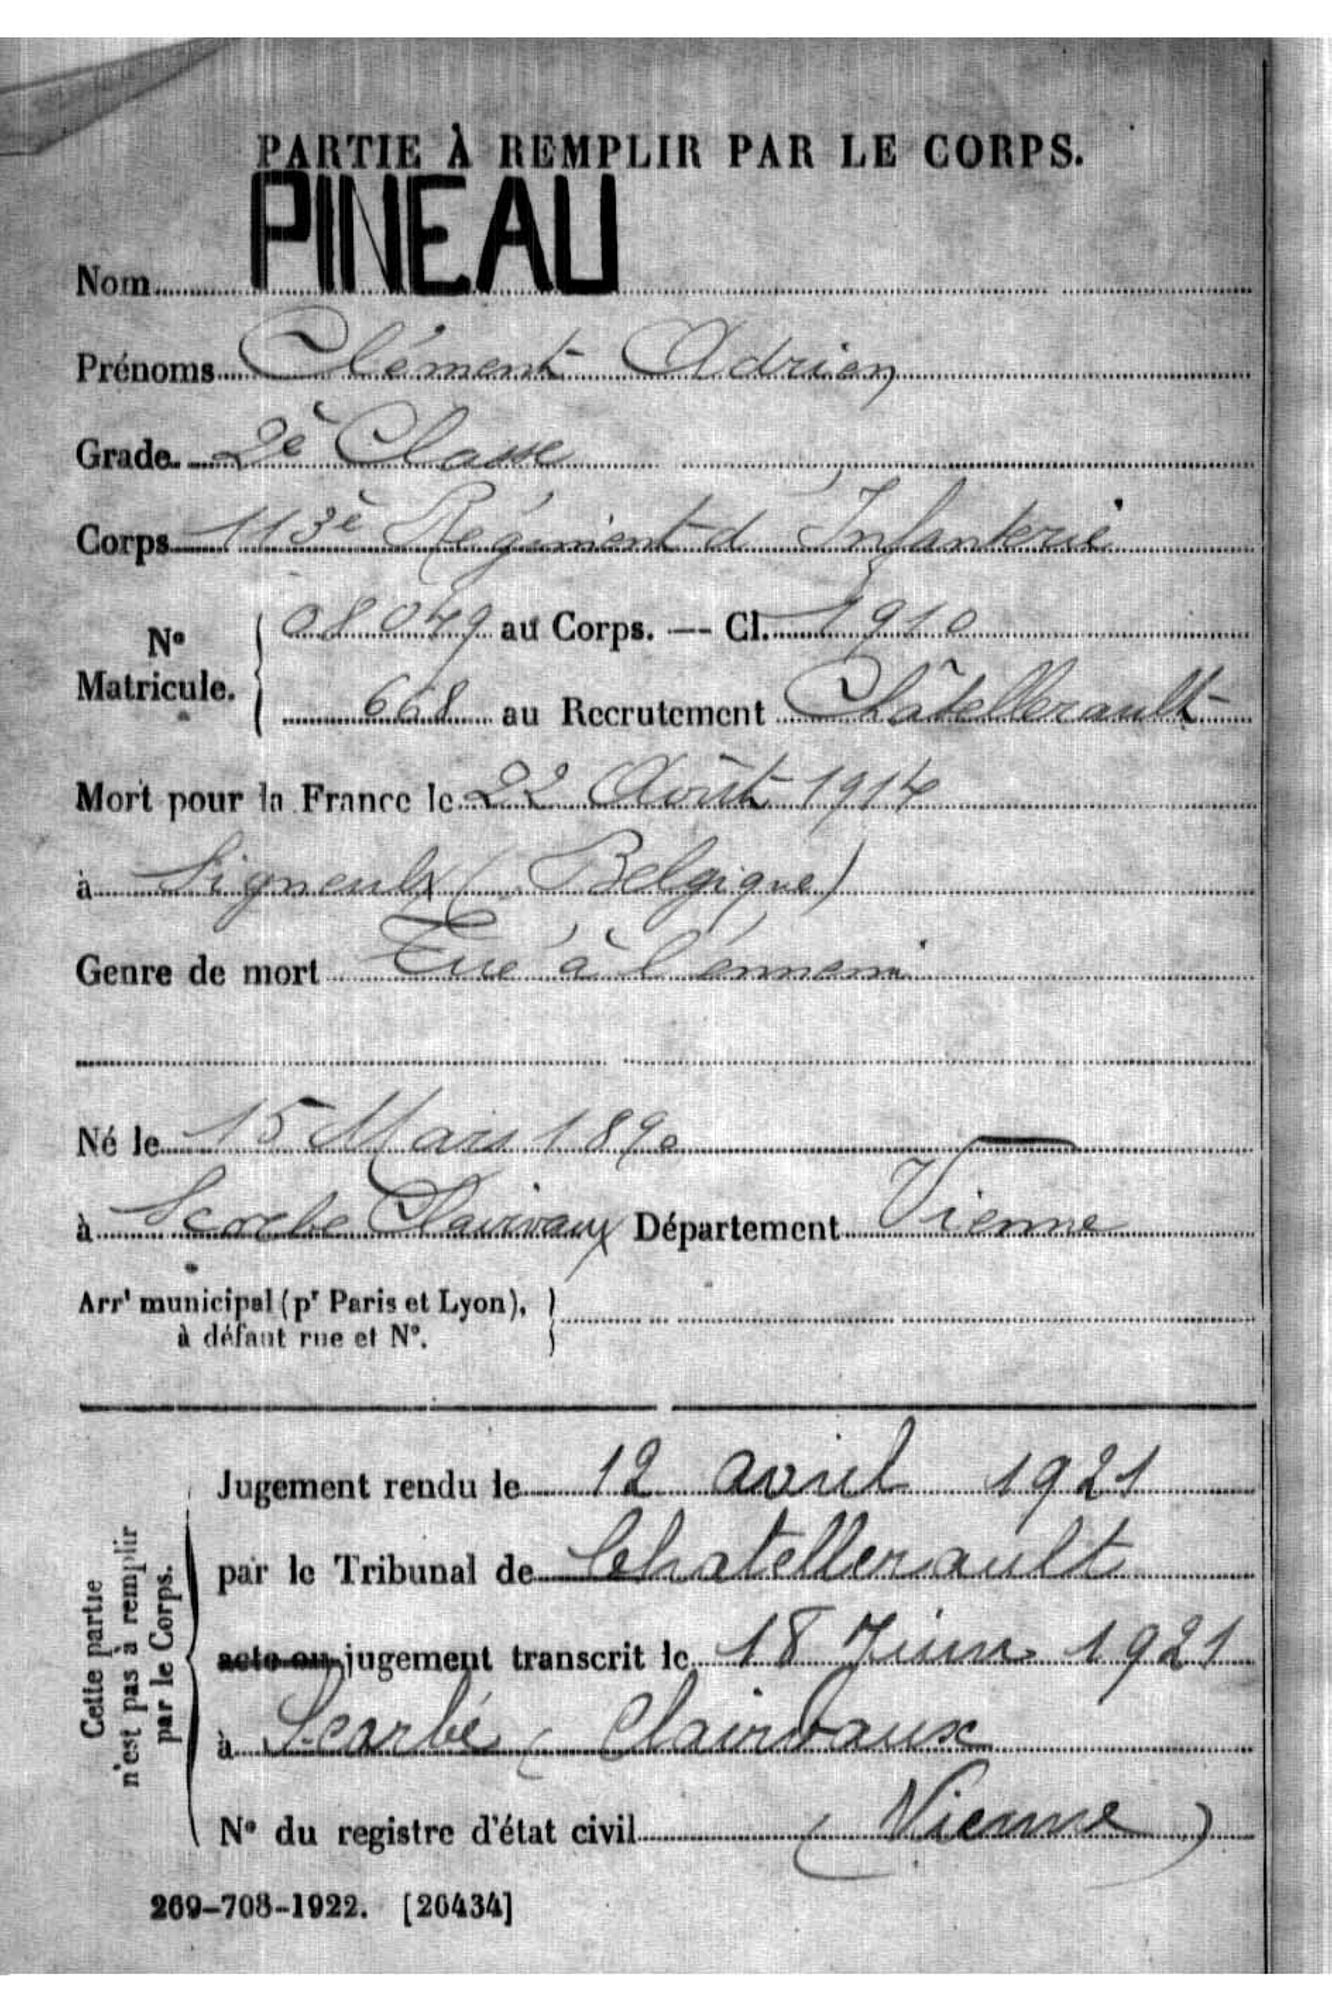 PARTIE À REMPLIR PAR LE CORPS.
Nom PINEAU
Prénoms Clément Adrien
Grade 2è Classe
Corps 113è Régiment d'Infanterie
N° Matricule. 08049 au Corps. — Cl. 1910
668 au Recrutement Châtellerault
Mort pour la France le 22 Août 1914
à Signeulx (Belgique)
Genre de mort Tué à l'ennemi
Né le 15 Mars 1890
à Scorbé Clairvaux Département Vienne
Arrt municipal (pr Paris et Lyon),
à défaut rue et N°.
Cette partie
n'est pas à remplir
par le Corps.
Jugement rendu le 12 avril 1921
par le Tribunal de Chatellerault
acte ou jugement transcrit le 18 Juin 1921
à Scorbé Clairvaux
N° du registre d'état civil (Vienne)
269-708-1922. [26434]